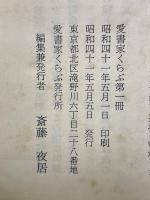 愛書家くらぶ第一冊
昭和四十一年五月一日 印刷
昭和四十一年五月五日 発行
東京都北区滝野川六丁目二十八番地
愛書家くらぶ発行所
編集兼発行者 斎藤夜居